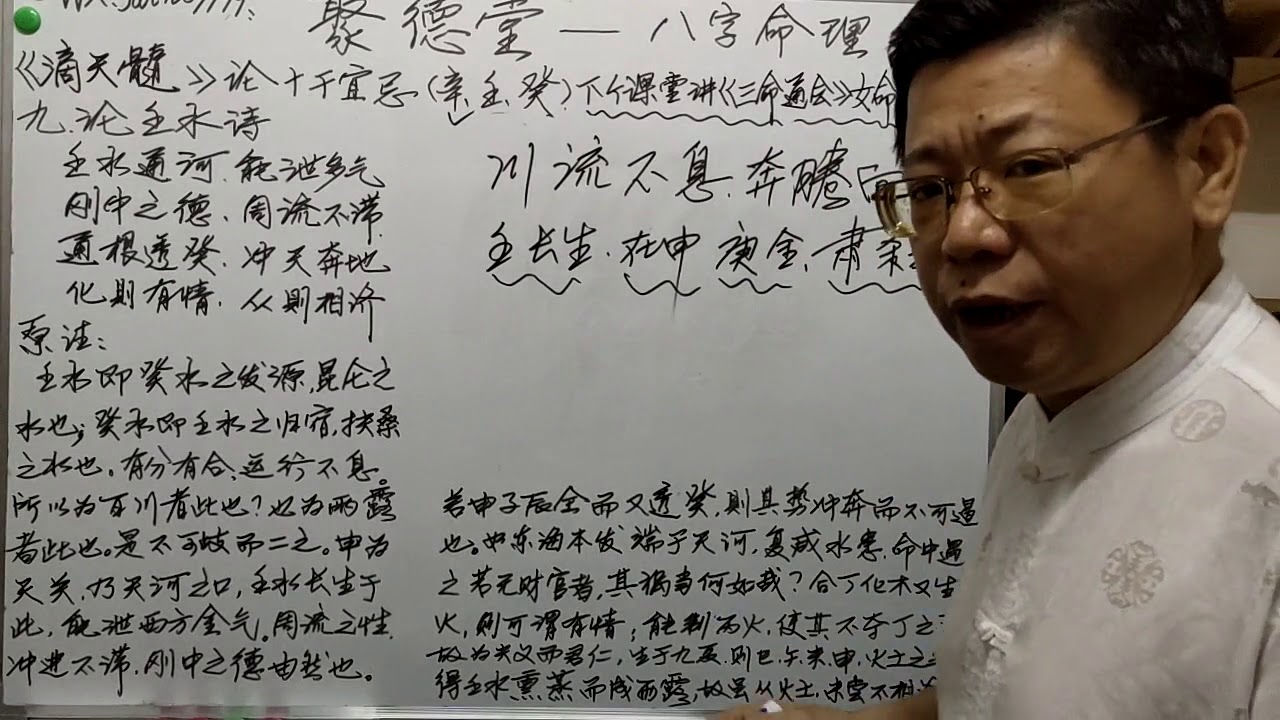 聚德堂 — 八字命理
《滴天髓》论十干宜忌(辛、壬、癸)下个课堂讲《三命通会》女命
九.论壬水诗
壬水通河.能泄多气
刚中之德、周流不滞.
通根透癸.冲天奔地
化则有情.从则相济
原注:
壬水即癸水之发源,昆仑之
水也;癸水即壬水之归宿,扶桑
之水也。有分有合、运行不息。
所以为百川者此也?也为雨露
者此也。是不可歧而二之。申为
天关.乃天河之口,壬水长生于
此,能泄西方金气。周流之性,
冲进不滞.刚中之德由然也。
川流不息.奔腾
壬长生.在申 庚金.肃杀
若申子辰全而又透癸,则其势冲奔而不可遏
也。如东海本发端于天河,复成水患.命中遇
之若无财官者,其祸当何如哉?合丁化木又生
火,则可谓有情;能制丙火,使其不夺丁之
故为夫义而君仁,生于九夏.则巳、午、未、申,火土之
得壬水熏蒸而成雨露,故虽从火土,未尝不相济